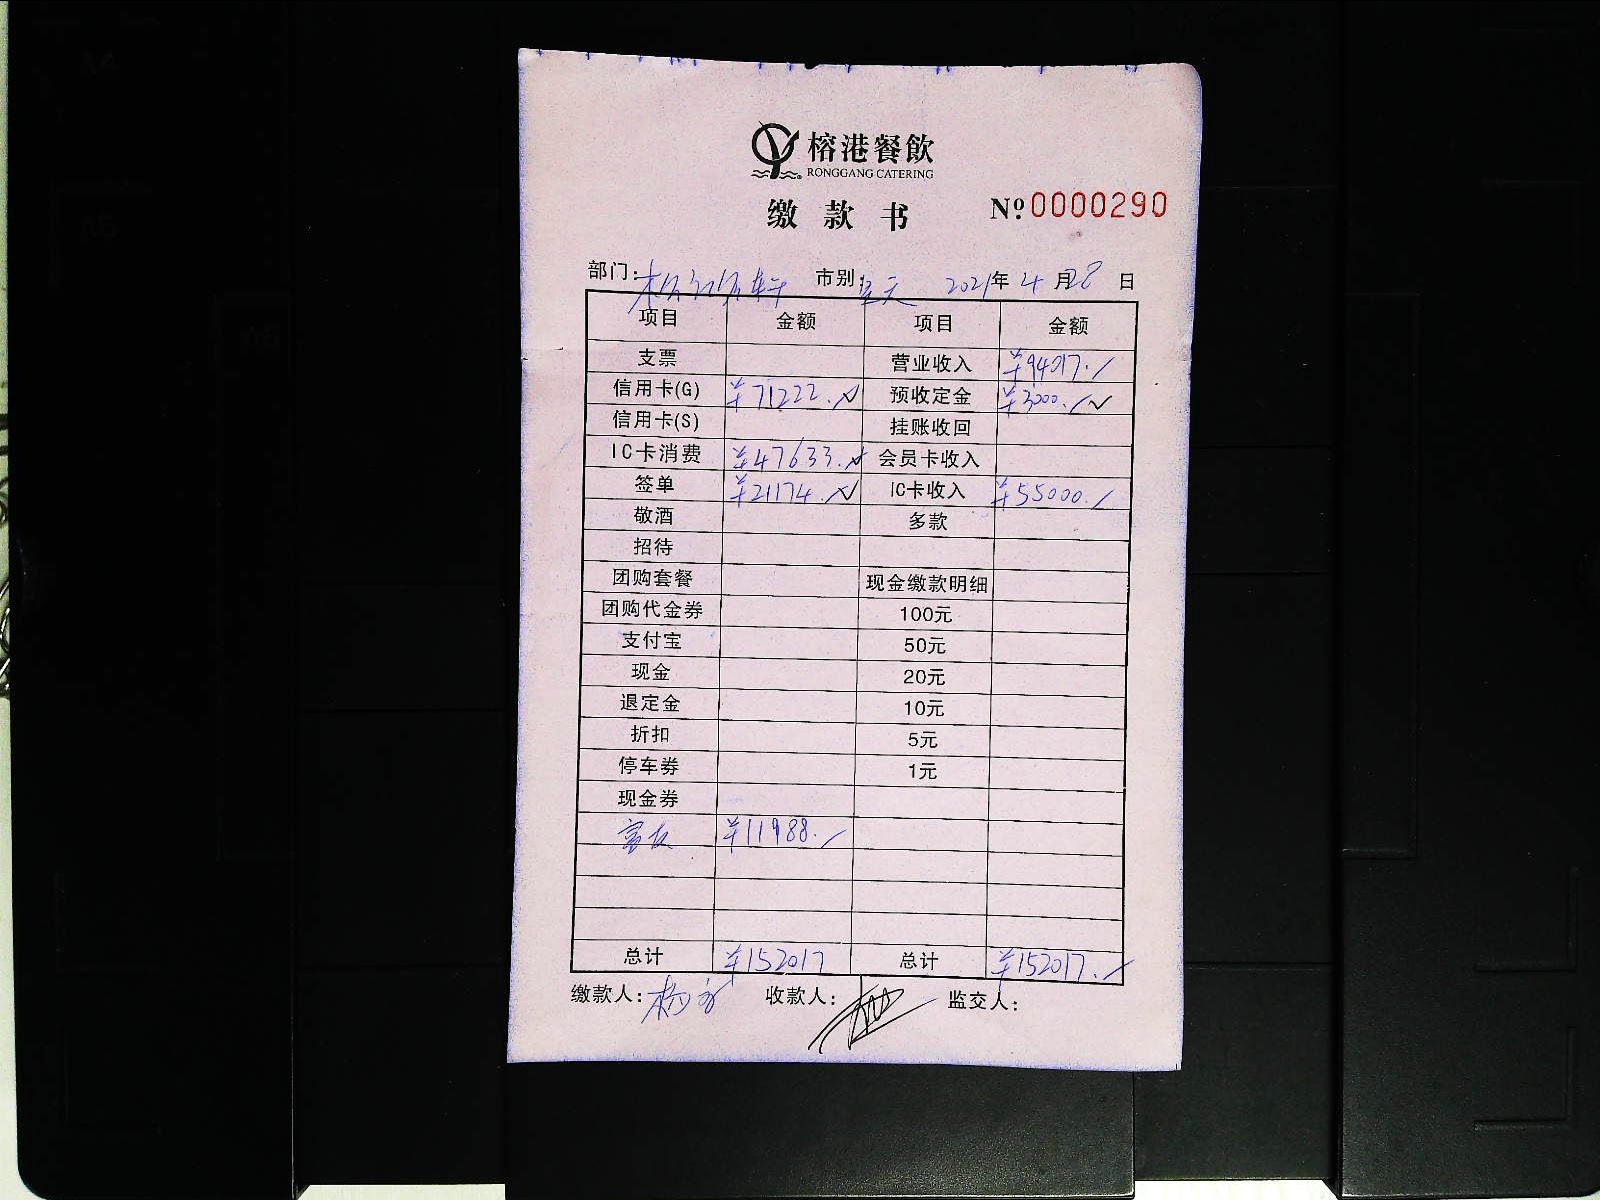 榕港餐飲
RONGGANG CATERING
缴款书 Nº 0000290
部门: 市别: 全天 2021年 4月28日
项目 金额 项目 金额
支票 营业收入 ¥94017.
信用卡(G) ¥71222. 预收定金 ¥3000.
信用卡(S) 挂账收回
IC卡消费 ¥47633. 会员卡收入
签单 ¥21174. IC卡收入 ¥55000.
敬酒 多款
招待
团购套餐 现金缴款明细
团购代金券 100元
支付宝 50元
现金 20元
退定金 10元
折扣 5元
停车券 1元
现金券
¥11988.
总计 ¥152017 总计 ¥152017.
缴款人: 收款人: 监交人: